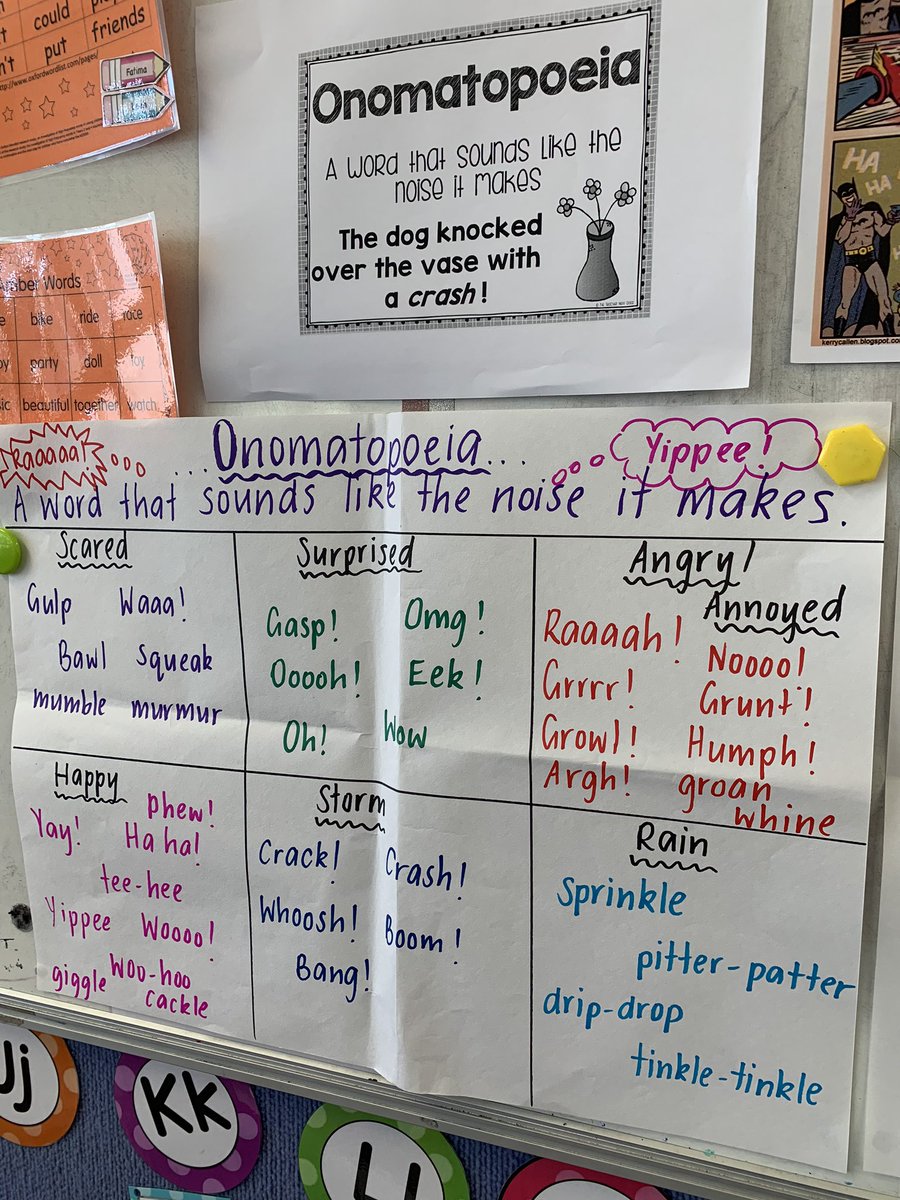 could
friends
n't put
http://www.oxfordwordlist.com/pages/
Fatima
Onomatopoeia
A word that sounds like the
noise it makes
The dog knocked
over the vase with
a crash!
HA
HA
kerrycallen.blogspot.com
Words
bike ride race
party doll toy
beautiful together watch
Raaaaa!
...Onomatopoeia...
Yippee!
A word that sounds like the noise it makes.
Scared
Gulp Waaa!
Bawl Squeak
mumble murmur
Surprised
Gasp! Omg!
Ooooh! Eek!
Oh! Wow
Angry/
Annoyed
Raaaah! Noooo!
Grrrr! Grunt!
Growl! Humph!
Argh! groan
whine
Happy
phew!
Yay! Ha ha!
tee-hee
Yippee Woooo!
giggle Woo-hoo
cackle
Storm
Crack! Crash!
Whoosh! Boom!
Bang!
Rain
Sprinkle
pitter-patter
drip-drop
tinkle-tinkle
Jj
Kk